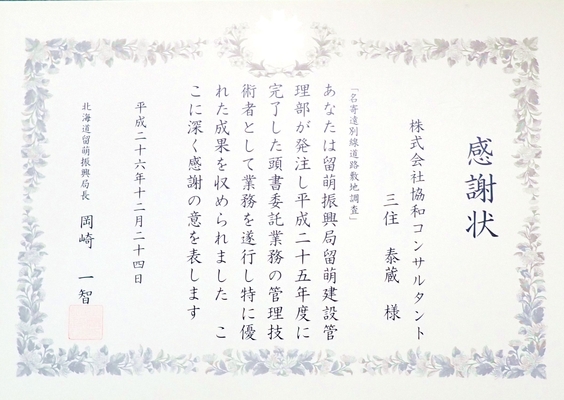 感謝状
株式会社協和コンサルタント
三住 泰蔵 様
「名寄遠別線道路敷地調査」
あなたは留萌振興局留萌建設管
理部が発注し平成二十五年度に
完了した頭書委託業務の管理技
術者として業務を遂行し特に優
れた成果を収められました こ
こに深く感謝の意を表します
平成二十六年十二月二十四日
北海道留萌振興局長 岡崎 一智